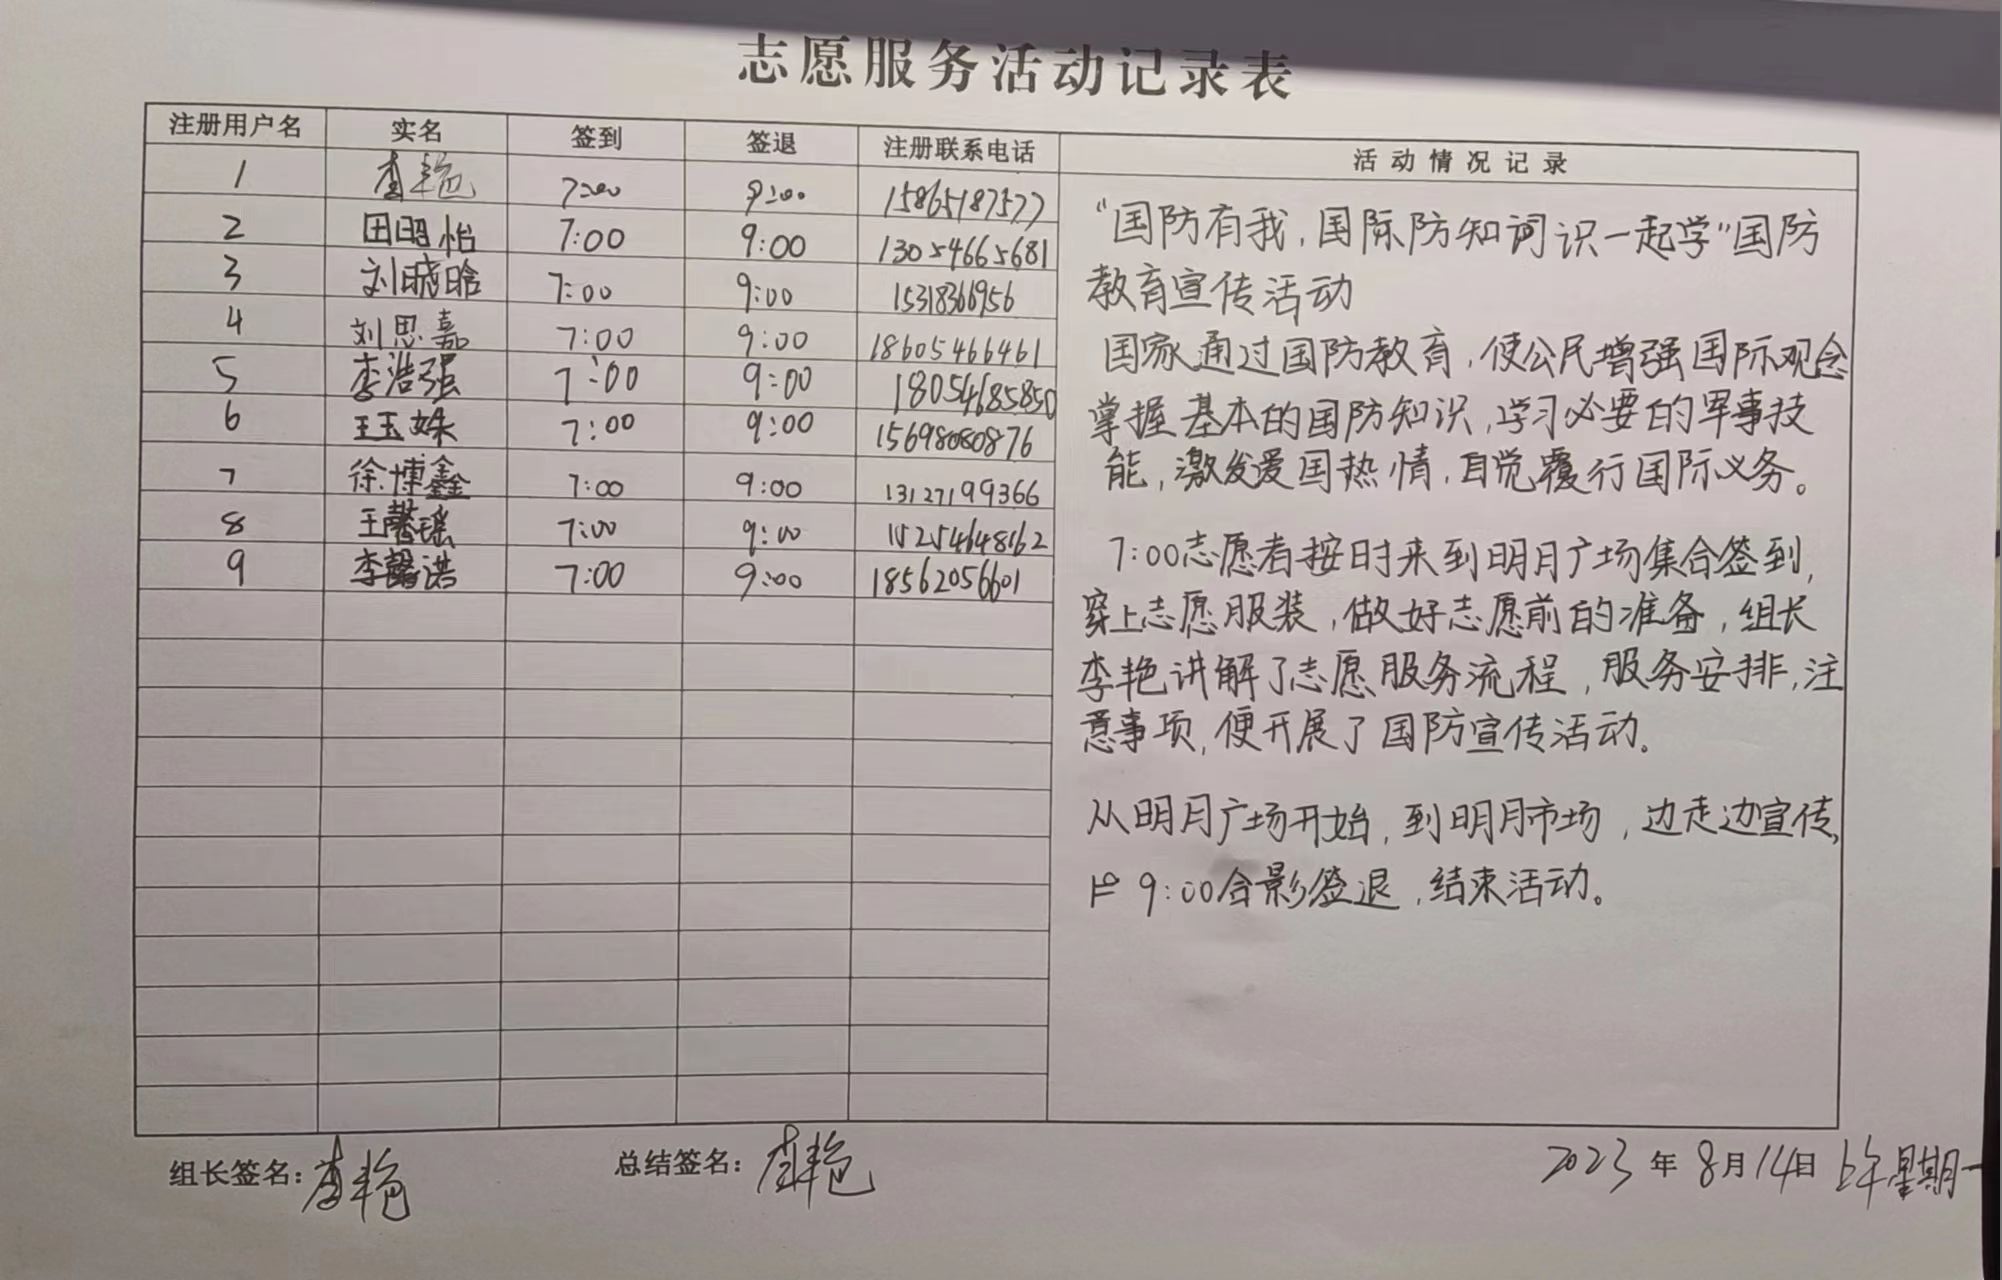 志愿服务活动记录表
注册用户名 实名 签到 签退 注册联系电话 活动情况记录
1 李艳 7:00 9:00 15865187577
2 田昭怡 7:00 9:00 13054665681
3 刘晓晗 7:00 9:00 1531836956
4 刘思嘉 7:00 9:00 18605466461
5 李浩强 7:00 9:00 18054685850
6 王玉姝 7:00 9:00 15698080876
7 徐博鑫 7:00 9:00 13127199366
8 王馨瑶 7:00 9:00 15254648162
9 李馨诺 7:00 9:00 18562056601
“国防有我，国际防知词识一起学”国防
教育宣传活动
国家通过国防教育，使公民增强国际观念
掌握基本的国防知识，学习必要的军事技
能，激发爱国热情，自觉履行国际义务。
7:00志愿者按时来到明月广场集合签到，
穿上志愿服装，做好志愿前的准备，组长
李艳讲解了志愿服务流程，服务安排，注
意事项，便开展了国防宣传活动。
从明月广场开始，到明月市场，边走边宣传，
9:00合影签退，结束活动。
组长签名：李艳 总结签名：李艳 2023年8月14日上午星期一